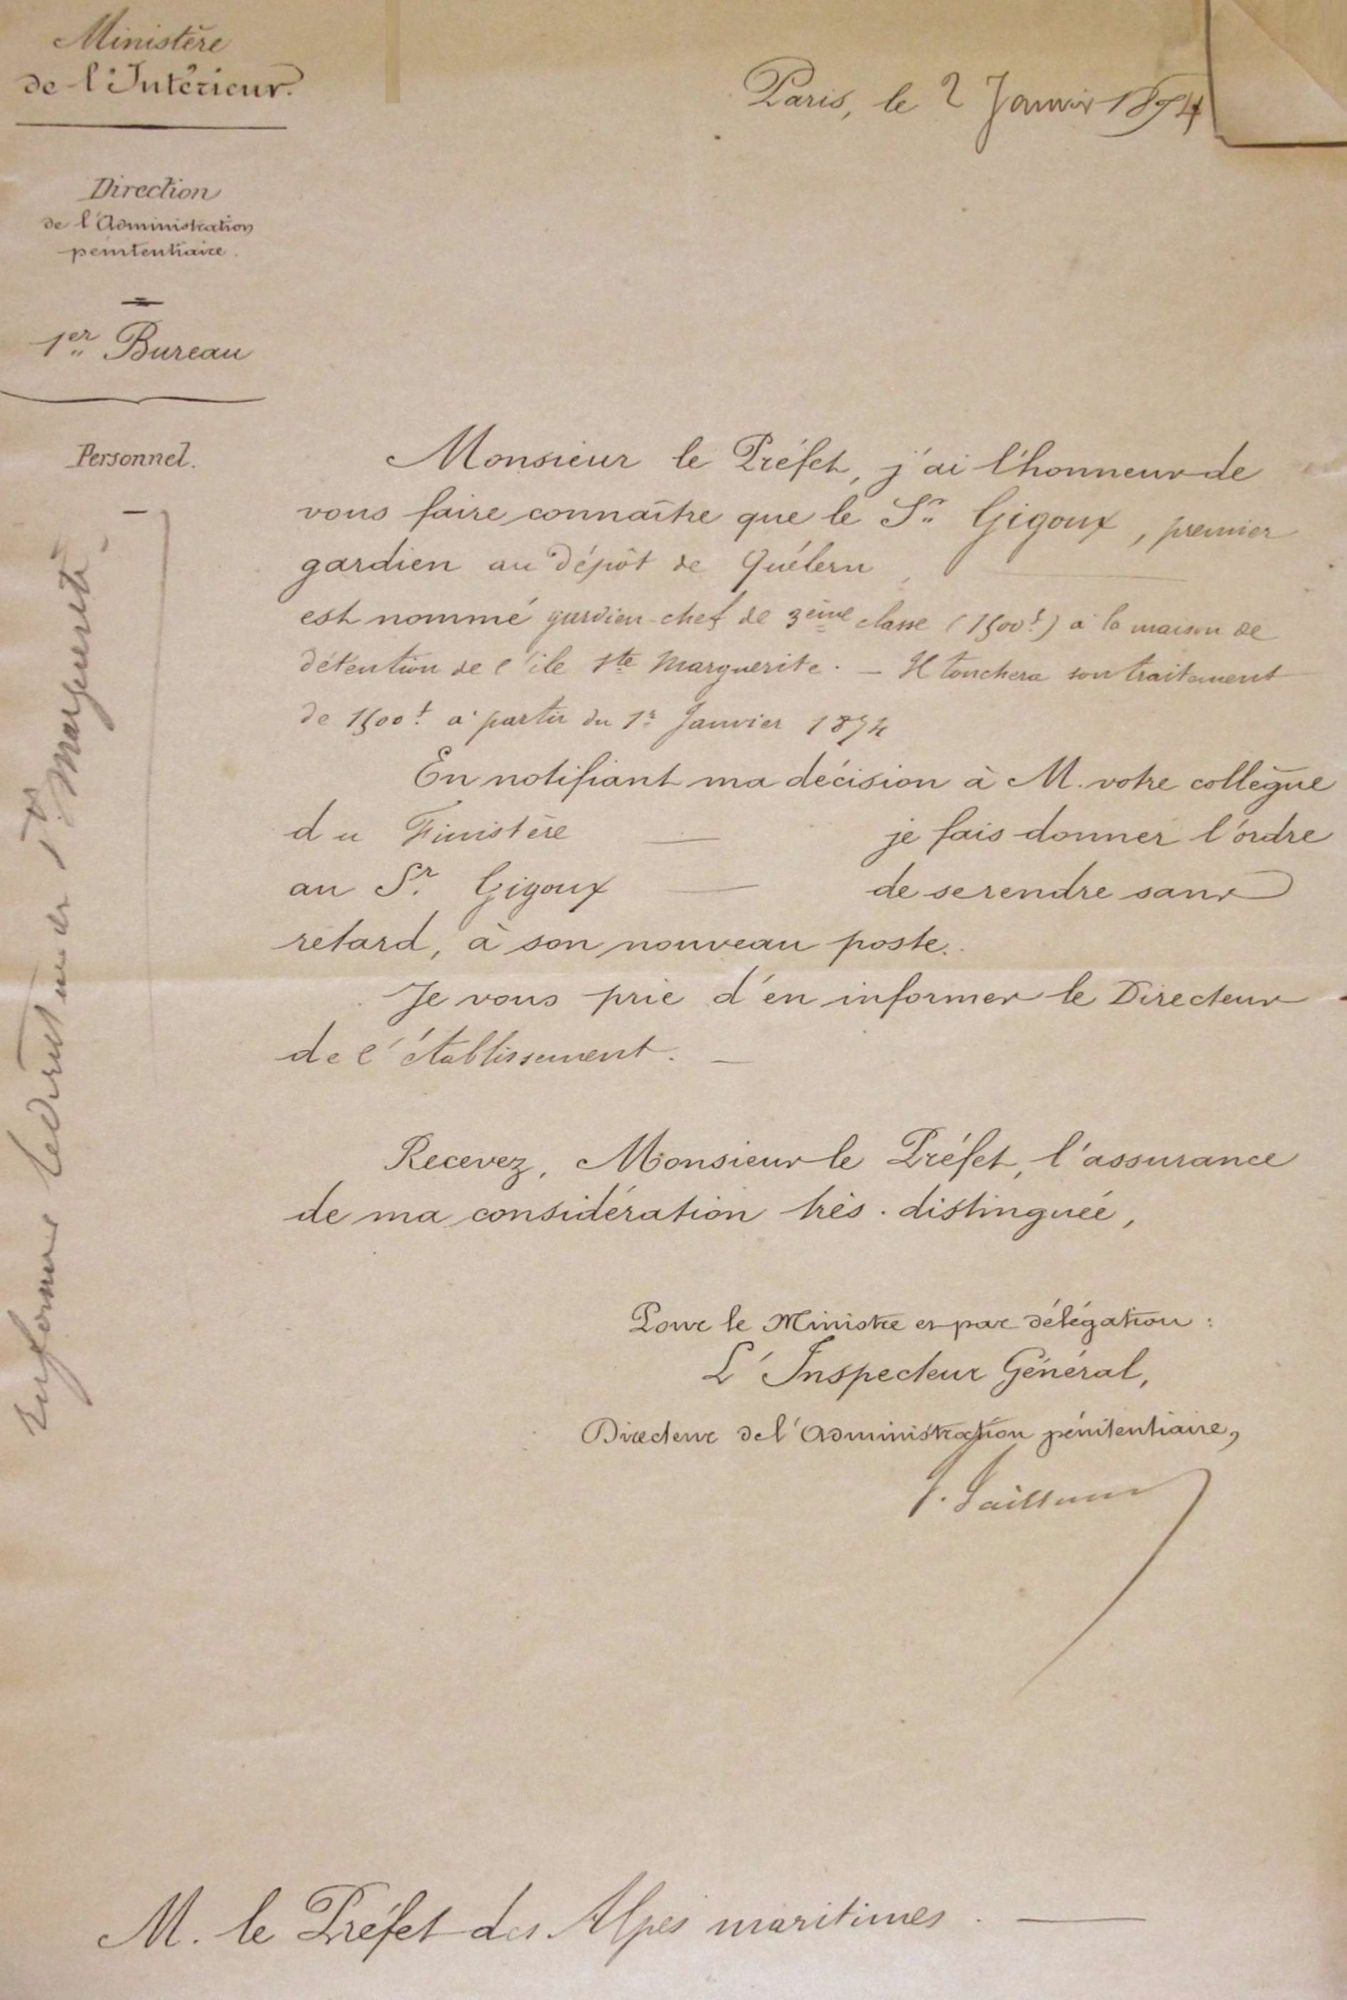 Ministère
de l'Intérieur.
Paris, le 2 Janvier 1874
Direction
de l'Administration
pénitentiaire.
1er Bureau
Personnel.
Monsieur le Préfet, j'ai l'honneur de
vous faire connaître que le Sr Gigoux, premier
gardien au dépôt de Quélern,
est nommé gardien-chef de 3ème classe (1500f) à la maison de
détention de l'île Ste Marguerite. — Il touchera son traitement
de 1500f à partir du 1r Janvier 1874
En notifiant ma décision à M. votre collègue
du Finistère — je fais donner l'ordre
au Sr. Gigoux — de se rendre sans
retard, à son nouveau poste.
Je vous prie d'en informer le Directeur
de l'établissement. —
Recevez, Monsieur le Préfet, l'assurance
de ma considération très-distinguée,
Pour le Ministre et par délégation :
L'Inspecteur Général,
Directeur de l'Administration pénitentiaire,
J. Jaillant
M. le Préfet des Alpes maritimes. —
Informer le directeur de Ste Marguerite